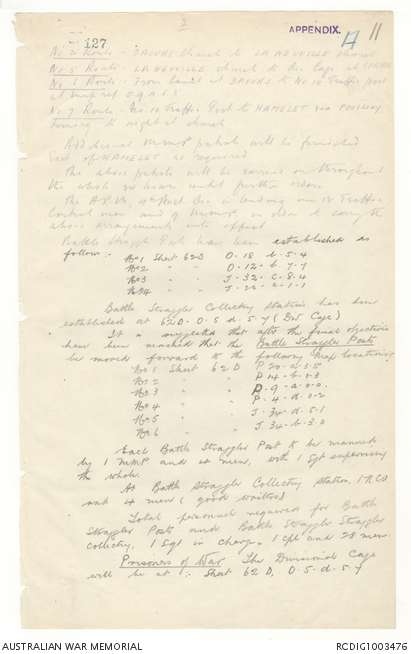 2
127
APPENDIX.
17
11
No 4 Route - DAOURS Church to LA NEUVILLE church
No 5 Route - LA NEUVILLE church to Div Cage at
No 6 Route - From Canal at DAOURS to No 10 Traffic post
at map ref
No 7 Route - No 10 Traffic Post to HAMELET via FOUILLOY
turning to right at church
Additional M.M.P. patrols will be furnished
east of HAMELET as required
The above patrols will be carried on throughout
the whole 24 hours until further orders
The A.P.M. 4th Aust Div is lending me 12 Traffic
Control men and 4 M.M.P. in order to carry the
above arrangements into effect
Battle Straggler Posts have been established as
follows :-
No 1 Sheet 62D O-18-b-5-4
No 2 " " O-12-b-7-7
No 3 " " J-32-c-8-4
No 4 " " J-22-c-1-1
Battle Straggler Collecting Station has been
established at 62D-O-5-d-5-7 (Div Cage)
It is suggested that after the final objectives
have been reached that the Battle Straggler Posts
be moved forward to the following map locations
No 1 Sheet 62D P-20-a-3.5
No 2 " " P-14-b-2.3
No 3 " " P-9-a-0.0
No 4 " " P-4-d-0.2
No 5 " " J-34-d-5.1
No 6 " " J-34-b-3.0
Each Battle Straggler Post to be manned
by 1 MMP and 4 men, with 1 Sgt supervising
the whole.
At Battle Straggler Collecting Station, 1 N.C.O
and 4 men (good writers)
Total personnel required for Battle
Straggler Posts and Battle Straggler Straggler
collecting, 1 Sgt in charge, 1 Cpl and 28 men.
Prisoners of War The Divisional Cage
will be at :- Sheet 62D, O-5-d-5-7
AUSTRALIAN WAR MEMORIAL
RCDIG1003476